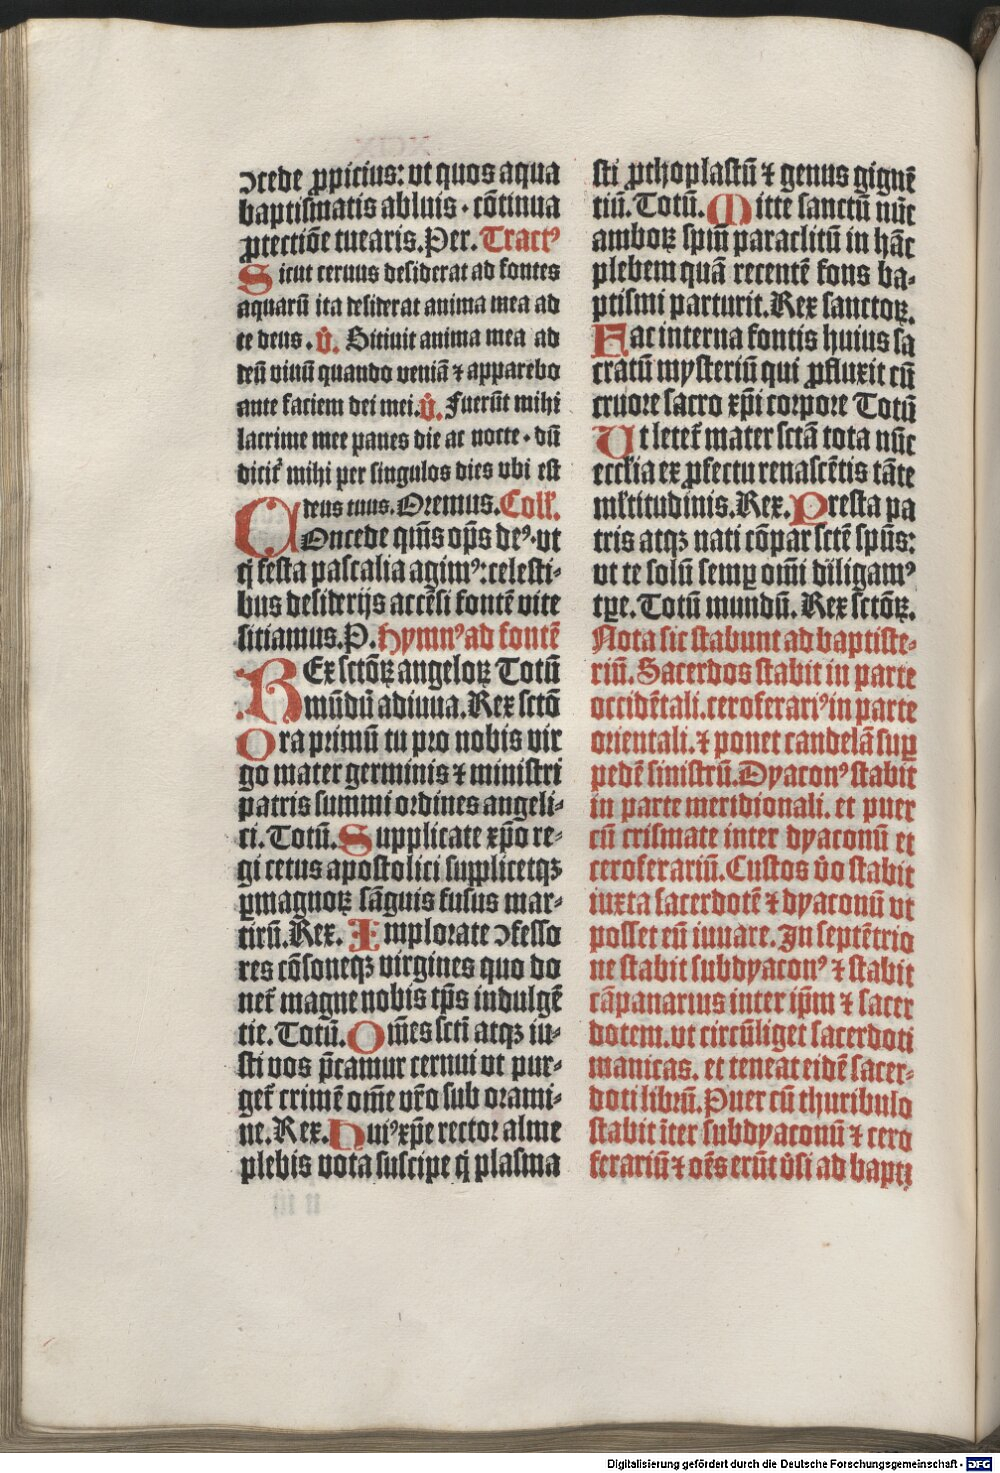 ↄcede ꝓpicius: vt quos aqua
baptismatis abluis · cōtinua
ꝓtectiōe tuearis. Per. Tractꝰ
Sicut ceruus desiderat ad fontes
aquarū ita desiderat anima mea ad
te deus. v̄. Sitiuit anima mea ad
deū viuū quando veniā ⁊ apparebo
ante faciem dei mei. v̄. Fuerūt mihi
lacrime mee panes die ac nocte · dū
dicit᷑ mihi per singulos dies vbi est
deus tuus. Oremus. Coll᷑.
COncede qm̄s op̄s deꝰ · vt
q̄ festa pascalia agimꝰ: celesti⸗
bus desiderijs accēsi fontē vite
sitiamus. P. Hymnꝰ ad fontē
REx sctōꝝ angeloꝝ Totū
mūdū adiuua. Rex sctō
Ora primū tu pro nobis vir
go mater germinis ⁊ ministri
patris summi ordines angeli⸗
ci. Totū. Supplicate xp̄o re⸗
gi cetus apostolici supplicetqꝫ
ꝑmagnoꝝ sāguis fusus mar⸗
tirū. Rex. Implorate ↄfesso
res cōsoneqꝫ virgines quo do
net᷑ magne nobis tp̄s indulgē
tie. Totū. Om̄es scti atqꝫ iu⸗
sti vos p̄camur cernui vt pur⸗
get᷑ crimē om̄e vr̄o sub orami⸗
ne. Rex. Huiꝰ xp̄e rector alme
plebis vota suscipe q̄ plasma
sti ꝓthoplastū ⁊ genus gignē
tiū. Totū. Mitte sanctū nūc
amboꝝ spm̄ paraclitū in hāc
plebem quā recentē fons ba⸗
ptismi parturit. Rex sanctoꝝ.
Fac interna fontis huius sa
cratū mysteriū qui ꝓfluxit cū
cruore sacro xp̄i corpore Totū
Ut letet᷑ mater sctā tota nūc
ecclīa ex ꝓfectu renascētis tāte
ml̄titudinis. Rex. Presta pa
tris atqꝫ nati cōpar sctē spūs:
vt te solū semꝑ om̄i diligamꝰ
tꝑe. Totū mundū. Rex sctōꝝ.
Nota sic stabunt ad baptiste⸗
riū. Sacerdos stabit in parte
occidētali. ceroferariꝰ in parte
orientali. ⁊ ponet candelā suꝑ
pedē sinistrū. Dyaconꝰ stabit
in parte meridionali. et puer
cū crismate inter dyaconū et
ceroferariū. Custos v̄o stabit
iuxta sacerdotē ⁊ dyaconū vt
posset eū iuuare. In septētrio
ne stabit subdyaconꝰ ⁊ stabit
cāpanarius inter ip̄m ⁊ sacer
dotem. vt circūliget sacerdoti
manicas. et teneat eidē sacer⸗
doti librū. Puer cū thuribulo
stabit īter subdyaconū ⁊ cero
ferariū ⁊ oēs erūt v̄si ad bapti
Digitalisierung gefördert durch die Deutsche Forschungsgemeinschaft - DFG